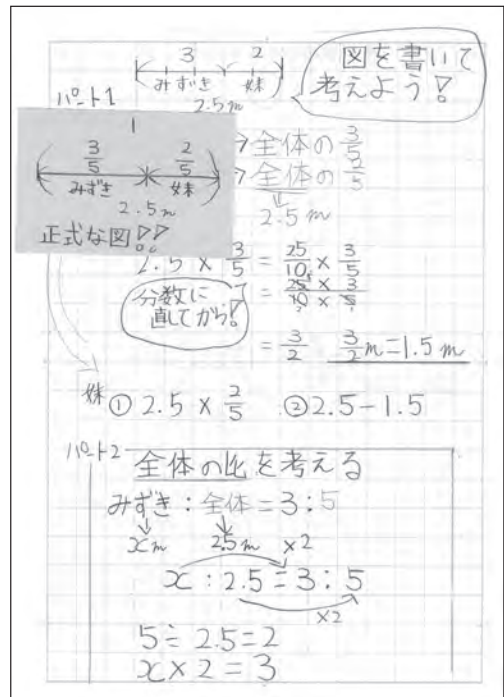 3 2
みずき 妹
2.5m
図を書いて
考えよう!
パート1
1
3/5 2/5
みずき 妹
2.5m
正式な図!!
→全体の3/5
→全体の2/5
2.5m
2.5 × 3/5 = 25/10 × 3/5
分数に
直してから!
= 25 × 3/10 × 5
= 3/2 3/2m=1.5m
妹 ① 2.5 × 2/5 ② 2.5-1.5
パート2
全体の比を考える
みずき:全体=3:5
xm 2.5m ×2
x:2.5=3:5
×2
5÷2.5=2
x×2=3